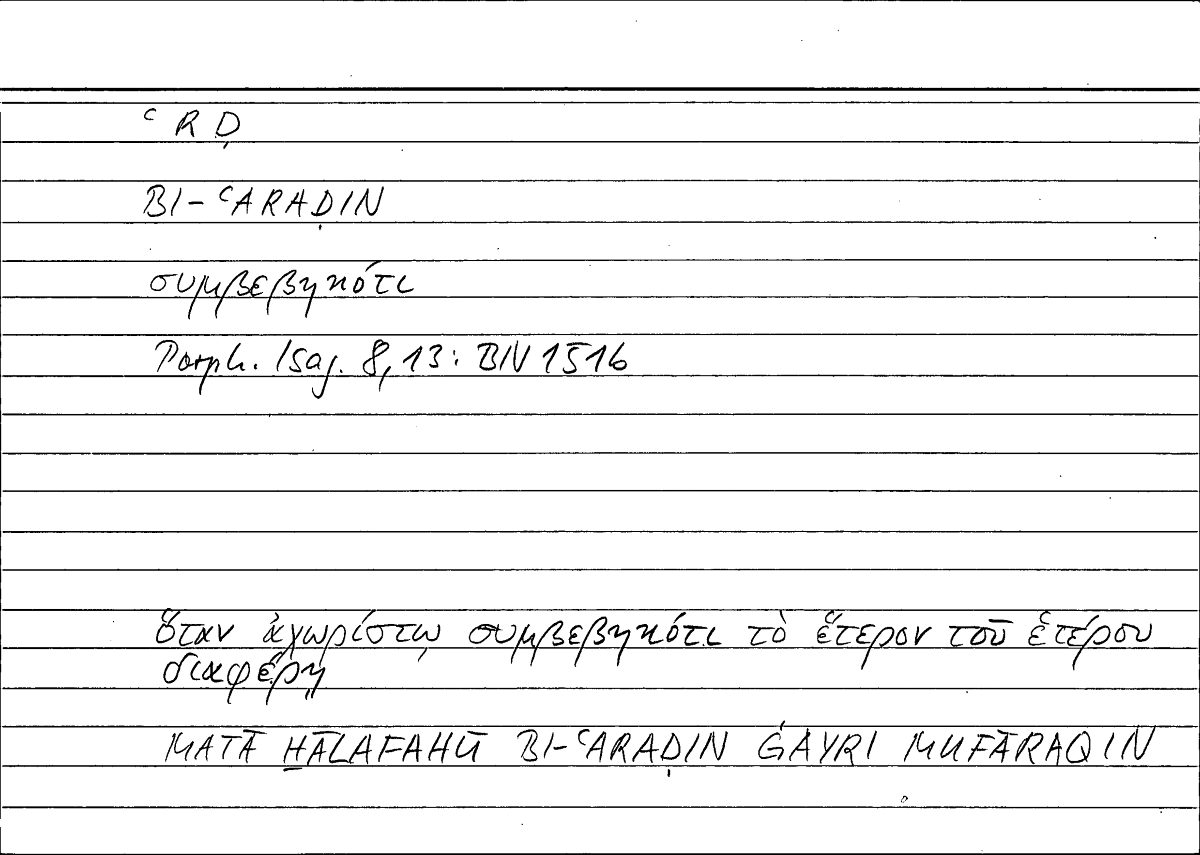 ʿRḌ
BI-ʿARAḌIN
συμβεβηκότι
Porph. Isag. 8,13: BN 1516
ὅταν ἀχωρίστῳ συμβεβηκότι τὸ ἕτερον τοῦ ἑτέρου
διαφέρῃ
MATĀ H̱ĀLAFAHŪ BI-ʿARAḌIN ĠAYRI MUFĀRAQIN